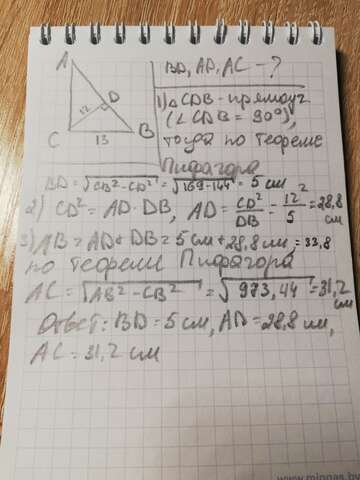 A
BD, AD, AC - ?
12
D
C
13
B
1) △CDB - прямоуг
(∠CDB = 90°),
тогда по теореме
Пифагора
BD = √CB² - CD² = √169-144 = 5 см
2) CD² = AD · DB, AD = CD²/DB = 12²/5 = 28,8 см
3) AB = AD + DB = 5 см + 28,8 см, = 33,8
по теореме Пифагора
AC = √AB² - CB² = √973,44 = 31,2 см
Ответ: BD = 5 см, AD = 28,8 см,
AC = 31,2 см
www.mingas.by